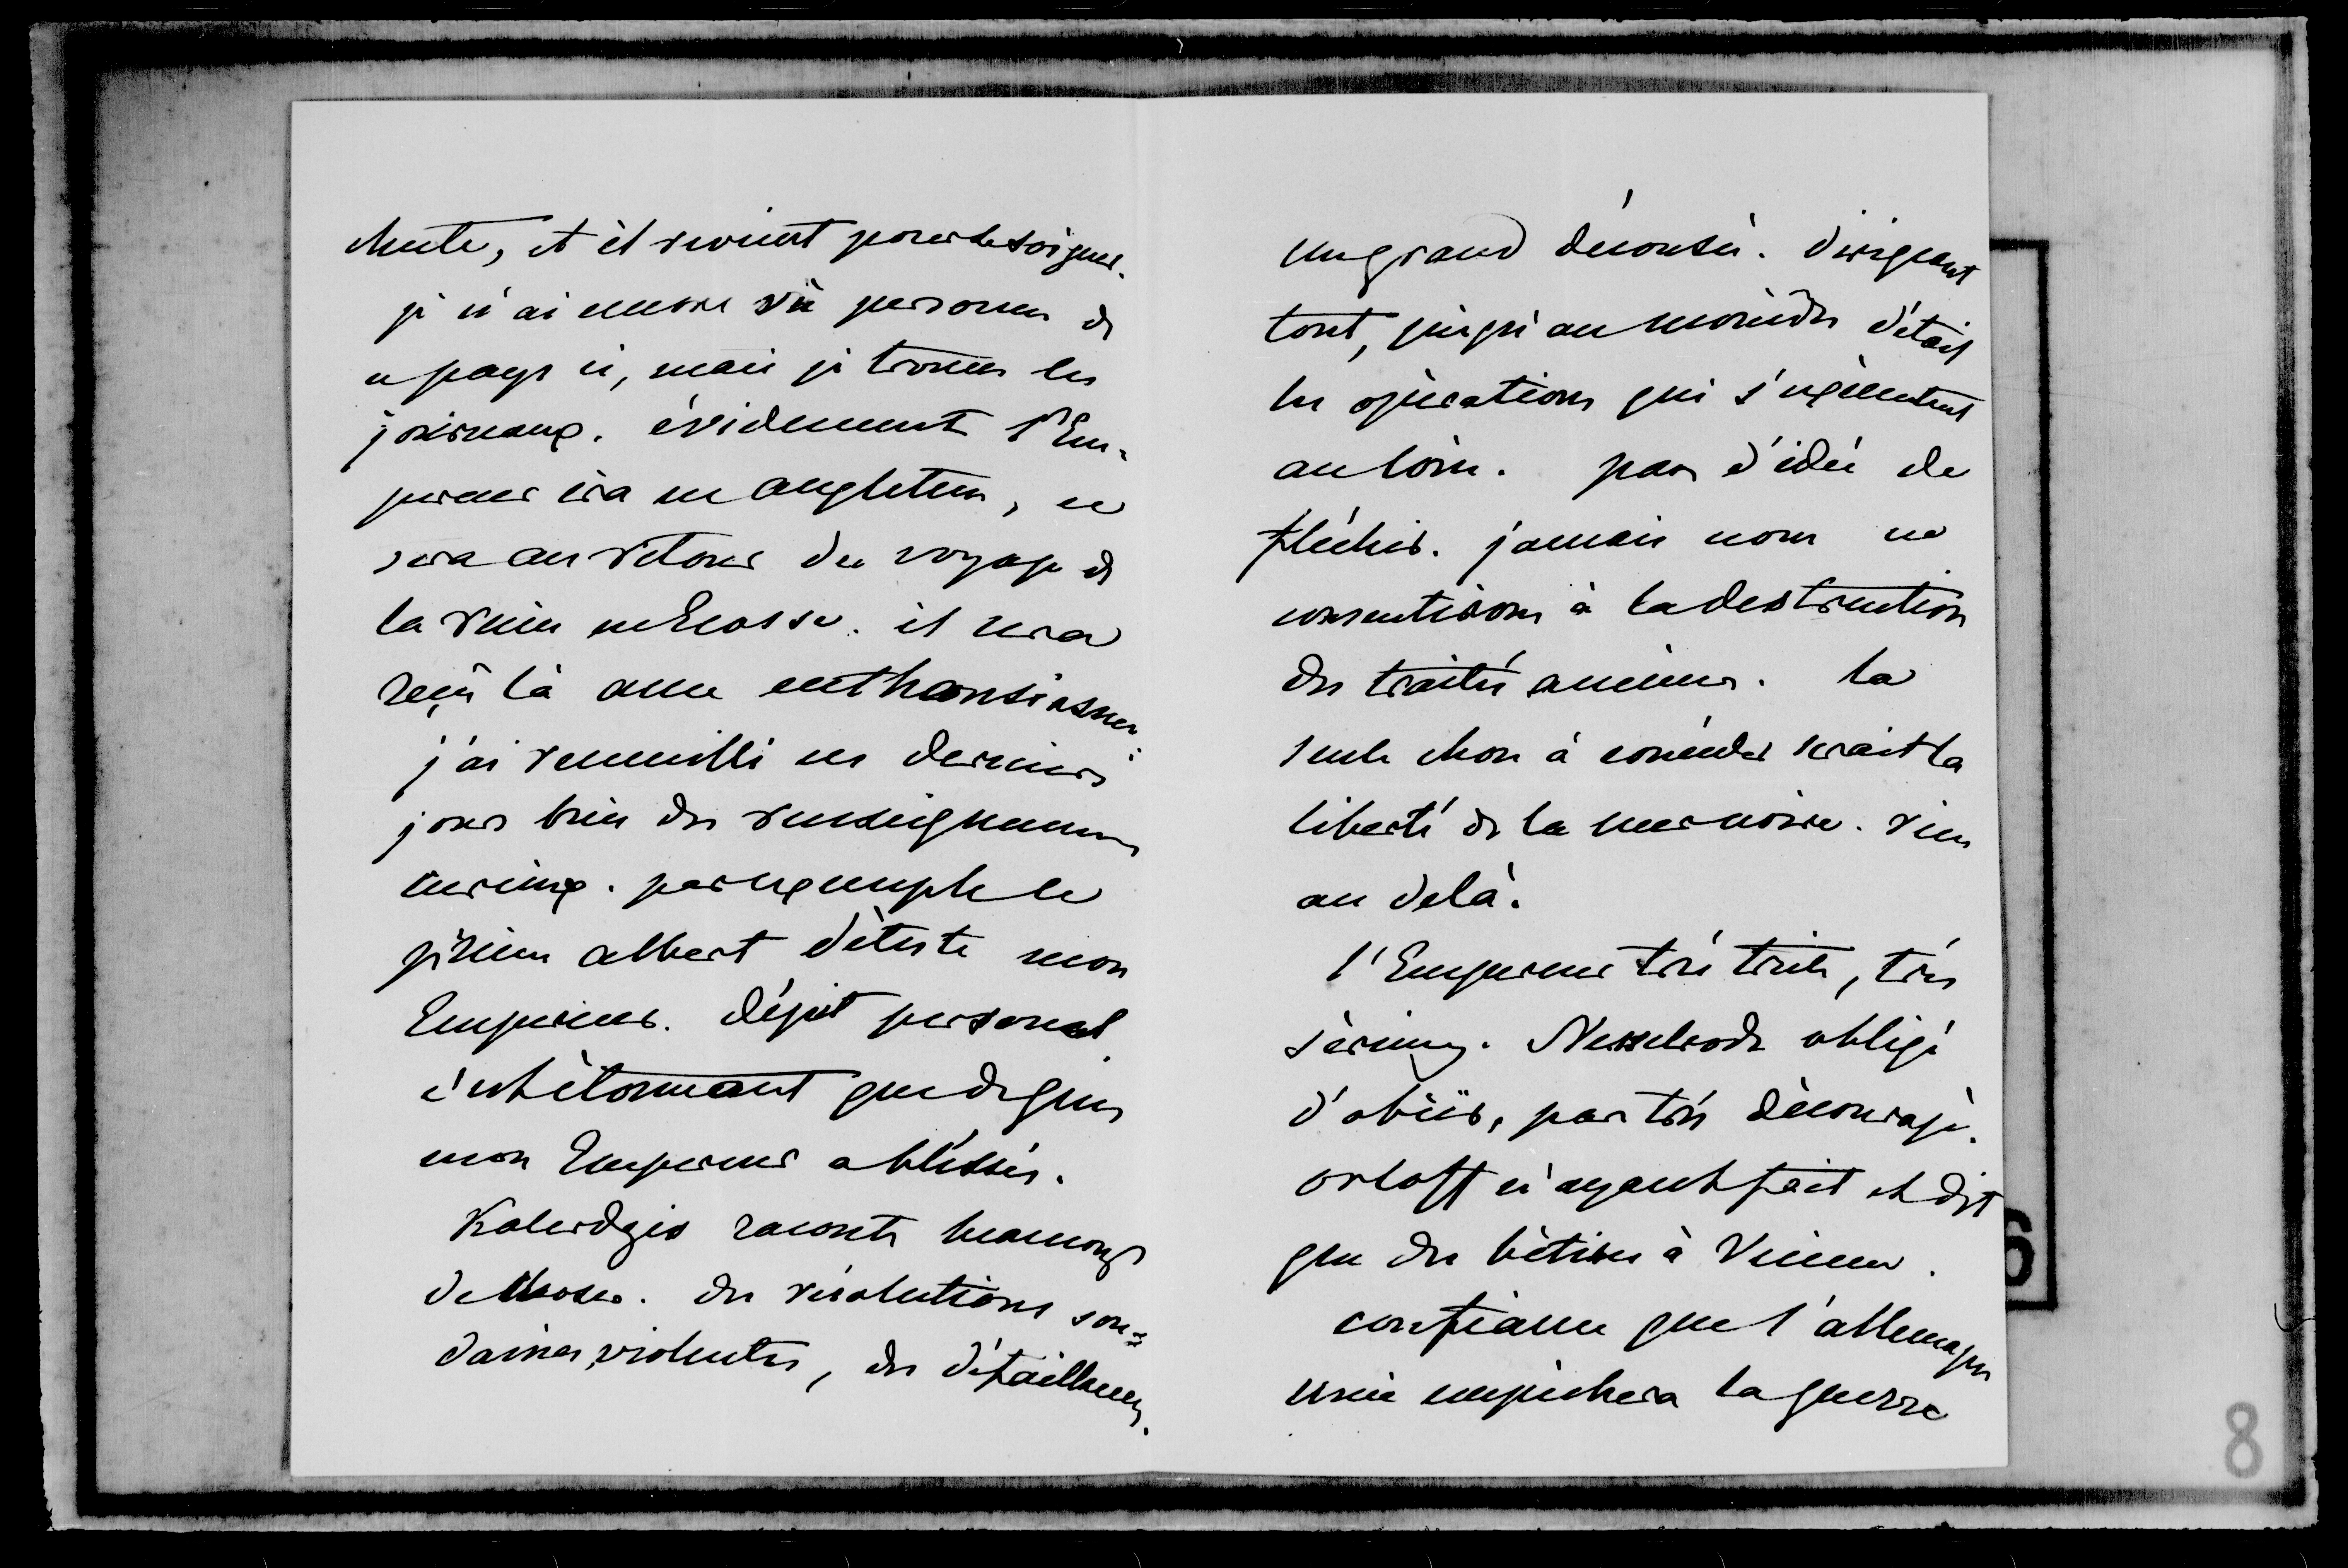 chute, et il revient pour se soigner.
je n'ai encore vu personne de
ce pays ci, mais je trouve les
journaux. évidemment l'Em-
pereur ira en angleterre, ce
sera au retour du voyage de
la reine en Ecosse. il sera
reçu là avec enthousiasme.
j'ai recueilli ces derniers
jours bien des renseignemens
curieux. par exemple le
prince albert déteste mon
Empereur. dépit personnel
c'est étonnant que de gens
mon Empereur a blessés.
Kalerdgis raconte beaucoup
de choses. des résolutions sou-
daines, violentes, des défaillances.
un grand décousu. dirigeant
tout, jusqu'au moindre détail
les opérations qui s'exécutent
au loin. pas d'idée de
fléchir. jamais nous ne
consentirons à la destruction
des traités anciens. la
seule chose à concéder serait la
liberté de la mer noire. rien
au delà.
l'Empereur très triste, très
sérieux. Nesselrode obligé
d'obéir, partout découragé.
orloff n'ayant fait et dit
que des bêtises à Vienne.
confiance que l'allemagne
unie empêchera la guerre
6
8